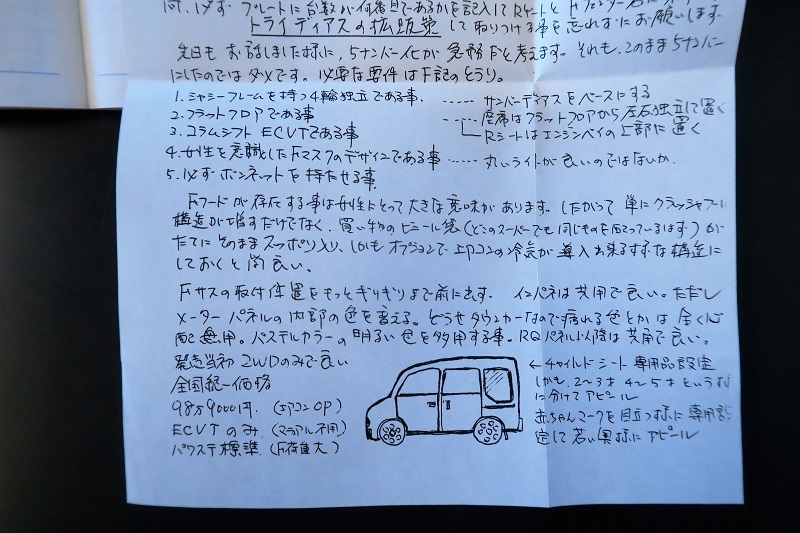 トライディアスの拡販策
して取りつける事を忘れずにお願いします.
先日も お話しました様に、5ナンバー化が 急務だと考えます。それも、このまま5ナンバー
にしたのではダメです。必要な要件は下記のとうり。
1. シャシーフレームを持つ4輪独立である事. …… サンバーディアスをベースにする
2. フラットフロアである事 …… 座席はフラットフロアから左右独立して置く
3. コラムシフト ECVTである事 Rシートはエンジンベイの上部に置く
4. 女性を意識したFマスクのデザインである事 …… 丸いライトが良いのではないか.
5. 必ずボンネットを持たせる事.
Fフードが存在する事は女性にとって大きな意味があります。したがって 単にクラッシャブルに
構造が増すだけでなく、買い物のビニール袋(どこのスーパーでも同じものを使っているはず)が
たてに そのまま スッポリ入り、しかも オプションで エアコンの冷気が 導入出来るすな構造に
しておくと尚良い。
Fサスの取付位置をもっとギリギリまで前に出す. インパネは共用で良い。ただし
メーターパネルの内部の色を変える。どうせタウンカーなので疲れる色とかは 全く心
配無用。パステルカラーの明るい色を多用する事。RQパネル以降は共用で良い。
発売当初 2WDのみで良い
全国統一価格
98万9000円. (エアコンOP)
ECVT のみ. (マニュアル不用)
パワステ標準. (F荷重大)
← チャイルドシート 専用品設定
しかも. 2〜3才 4〜5才という様
に分けてアピール
赤ちゃんマークを目立つ様に専用設
定して若い奥様にアピール